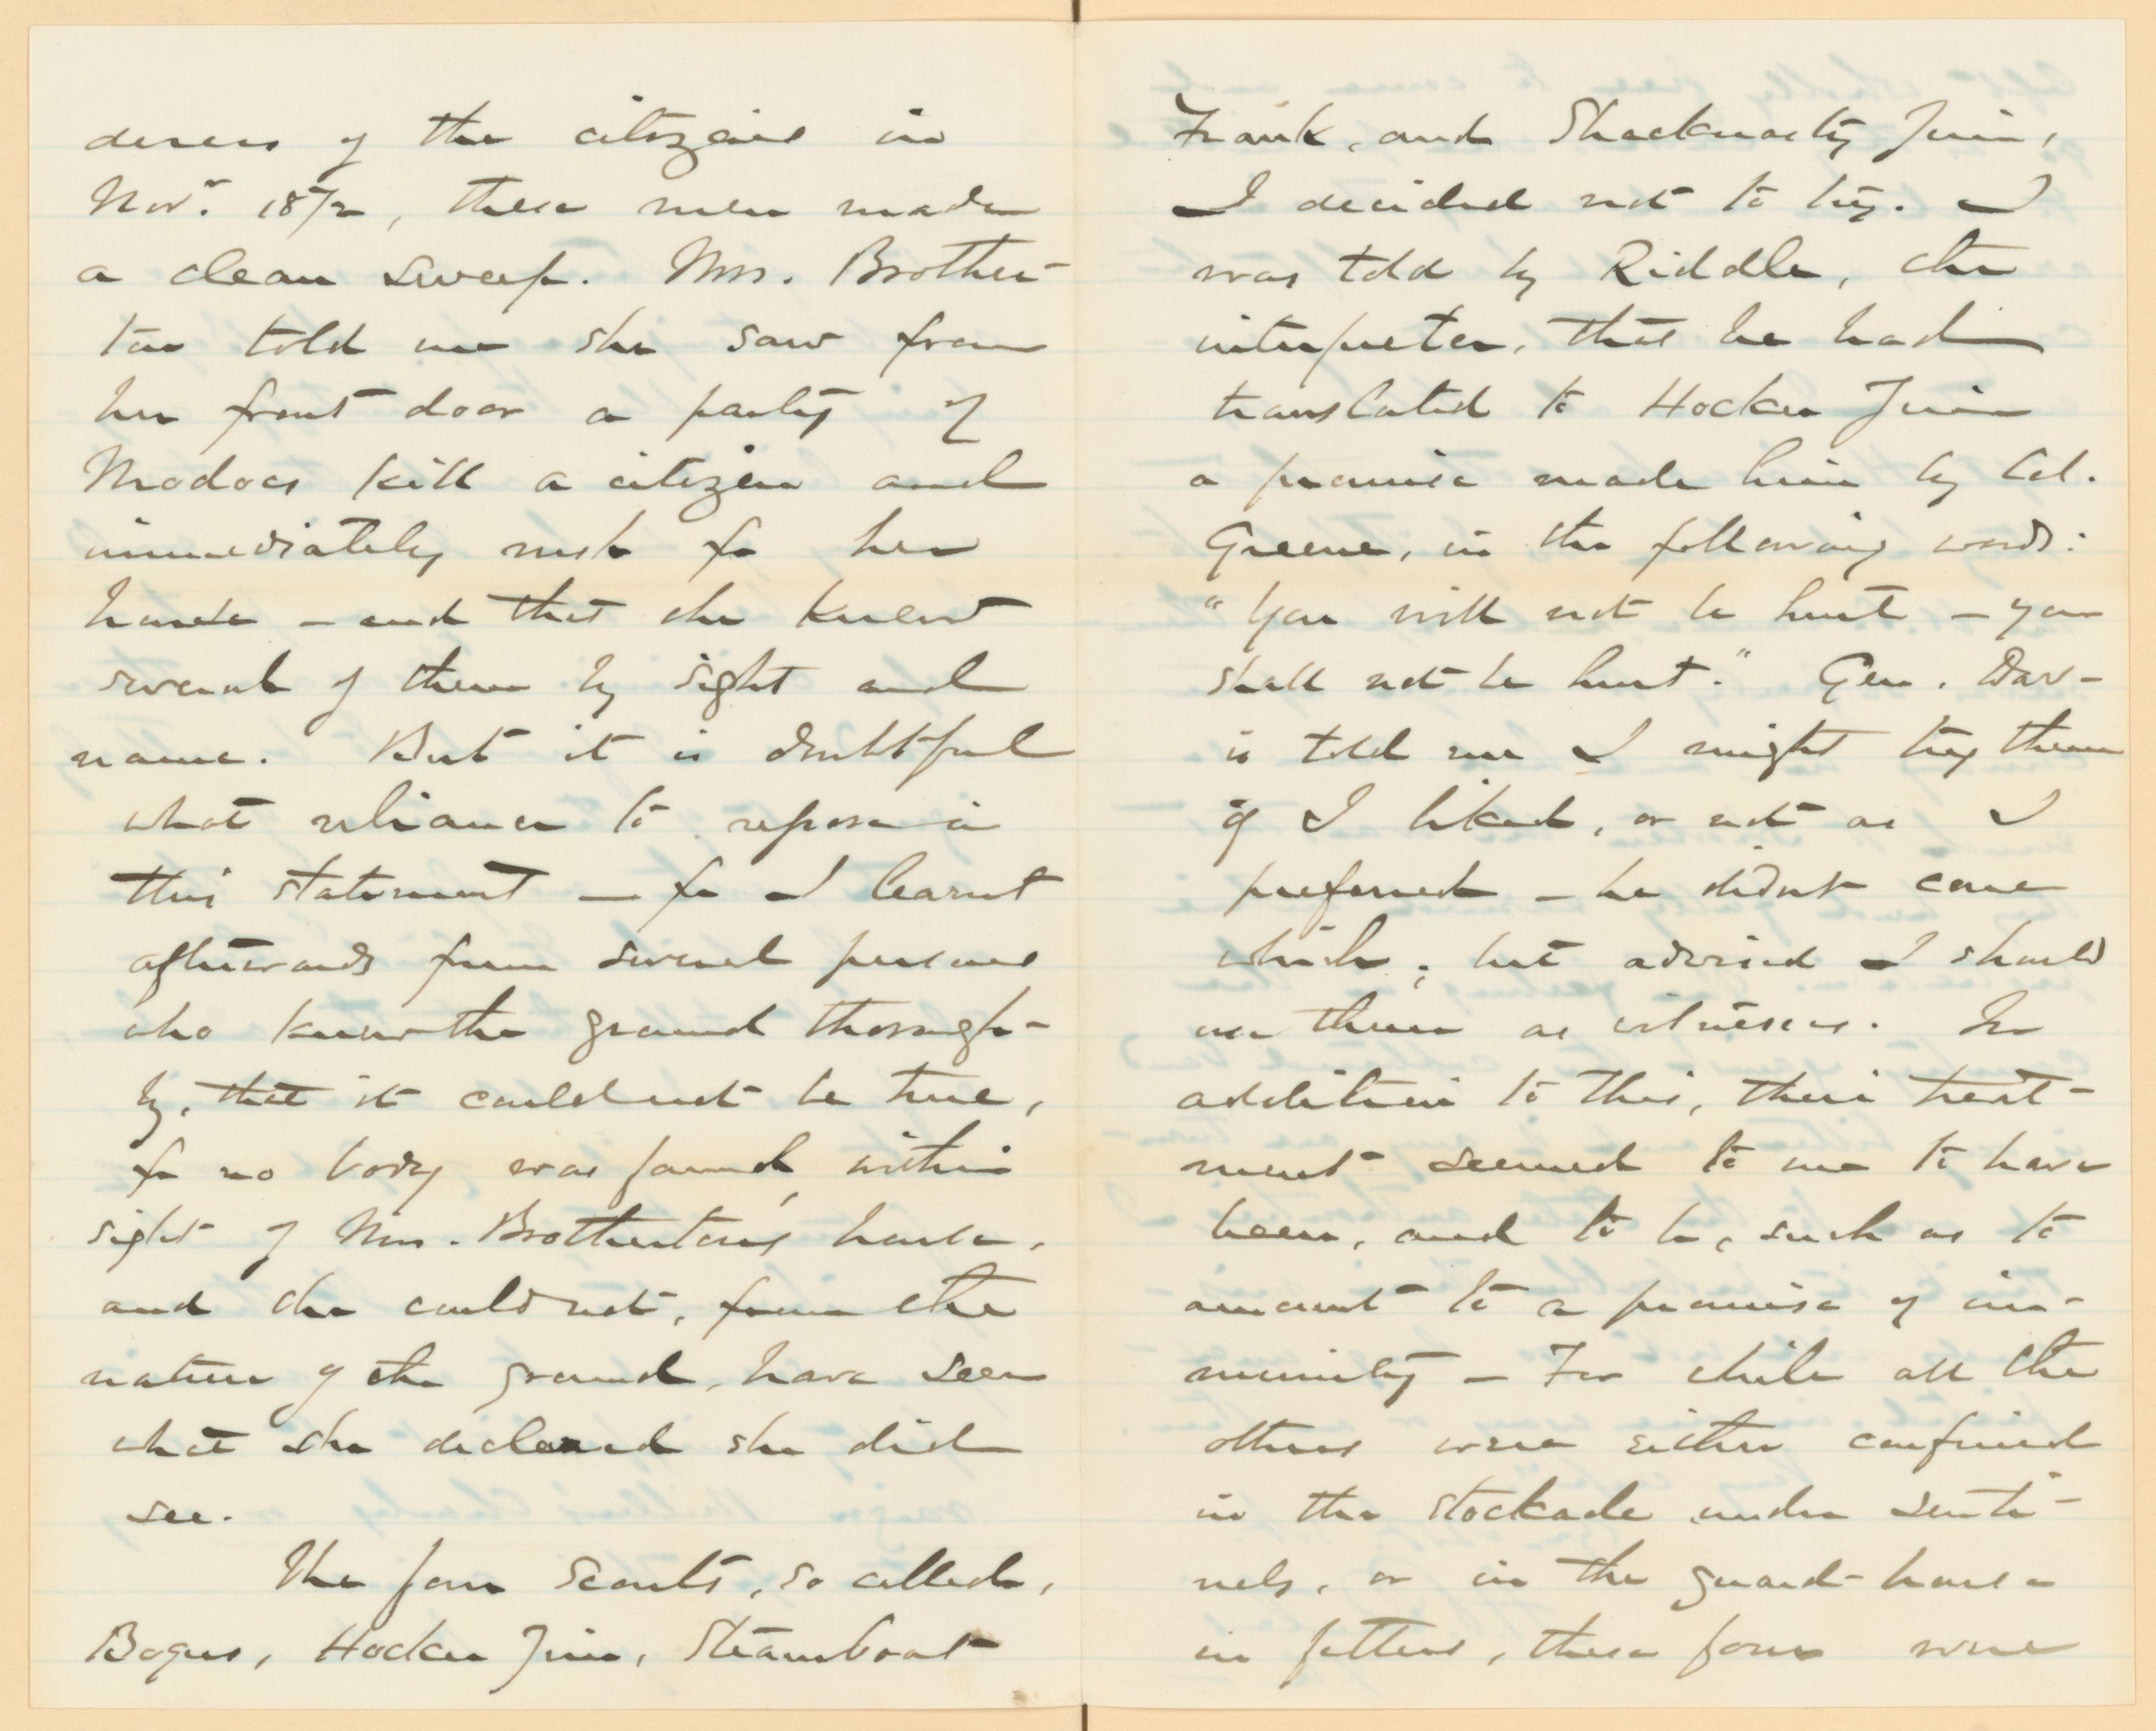 derers of the citizens in
Novr. 1872, these men made
a clean sweep. Mrs. Brother-
ton told me she saw from
her front door a party of
Modocs kill a citizen and
immediately rush for her
house – and that she knew
several of them by sight and
name. But it is doubtful
what reliance to repose in
this statement – for I learnt
afterwards from several persons
who knew the ground thorough-
ly, that it could not be true,
for no body was found, within
sight of Mrs. Brotherton's house,
and she could not, from the
nature of the ground, have seen
what she declared she did
see.
The four scouts, so called,
Bogus, Hooker Jim, Steamboat
Frank, and Shacknasty Jim,
I decided not to try. I
was told by Riddle, the
interpreter, that he had
translated to Hooker Jim
a promise made him by Col.
Greene, in the following words:
"You will not be hurt – you
shall not be hurt." Gen. Dav-
is told me I might try them
if I liked, or not as I
preferred – he didn't care
which; but advised I should
use them as witnesses. In
addition to this, their treat-
ment seemed to me to have
been, and to be, such as to
amount to a promise of im-
munity – For while all the
others were either confined
in the stockade under senti-
nels, or in the guard-house
in fetters, these four were